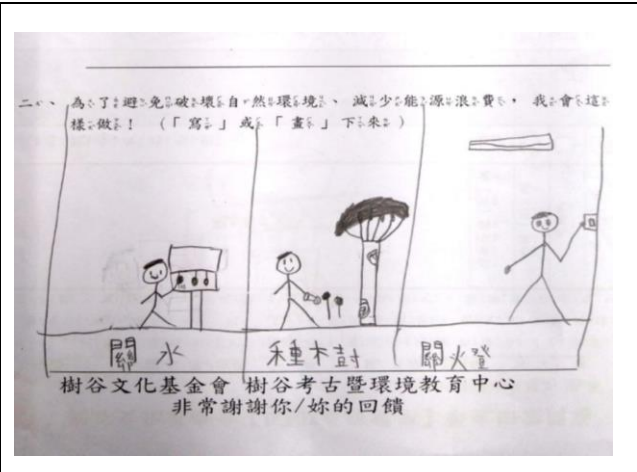 二、為了避免破壞自然環境、減少能源浪費，我會這
樣做！（「寫」或「畫」下來）
關水 種樹 關燈
樹谷文化基金會 樹谷考古暨環境教育中心
非常謝謝你/妳的回饋